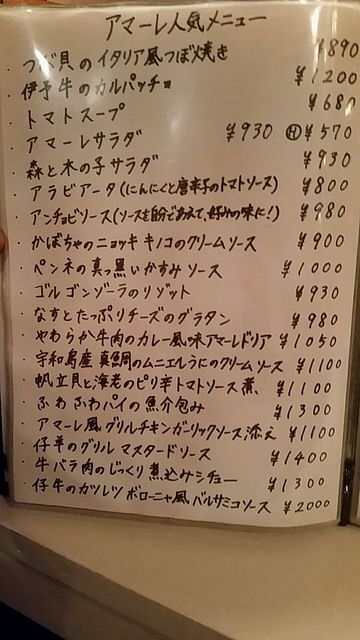 アマーレ人気メニュー
・つぶ貝のイタリア風つぼ焼き ¥890
・伊予牛のカルパッチョ ¥1200
・トマトスープ ¥680
・アマーレサラダ ¥930 Ⓗ¥570
・森と木の子サラダ ¥930
・アラビアータ(にんにくと唐辛子のトマトソース) ¥800
・アンチョビソース(ソースを自分であえて、好みの味に!) ¥980
・かぼちゃのニョッキ キノコのクリームソース ¥900
・ペンネの真っ黒いかすみソース ¥1000
・ゴルゴンゾーラのリゾット ¥930
・なすとたっぷりチーズのグラタン ¥980
・やわらか牛肉のカレー風味アマーレドリア ¥1050
・宇和島産 真鯛のムニエルうにのクリームソース ¥1100
・帆立貝と海老のピリ辛トマトソース煮、 ¥1100
・ふわふわパイの魚介包み ¥1300
・アマーレ風グリルチキンガーリックソース添え ¥1100
・仔羊のグリル マスタードソース ¥1400
・牛バラ肉のじっくり煮込みシチュー ¥1300
・仔牛のカツレツ ボローニャ風 バルサミコソース ¥2000